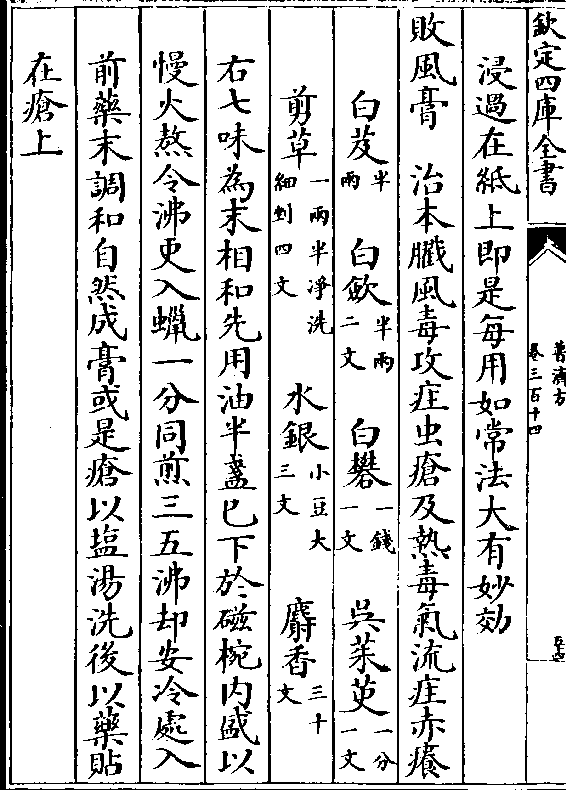 欽定四庫全書
普濟方
卷三百十四
浸過在紙上即是每用如常法大有妙効
敗風膏　治本臟風毒攻疰虫瘡及熱毒氣流疰赤癢
白芨半兩　白歛半兩二文　白礬一錢一文　吳茱萸一分一文
剪草一兩半凈洗細剉四文　水銀小豆大三文　麝香三十文
右七味為末相和先用油半盞已下於磁椀内盛以
慢火熬令沸更入蠟一分同煎三五沸却安冷處入
前藥末調和自然成膏或是瘡以塩湯洗後以藥貼
在瘡上